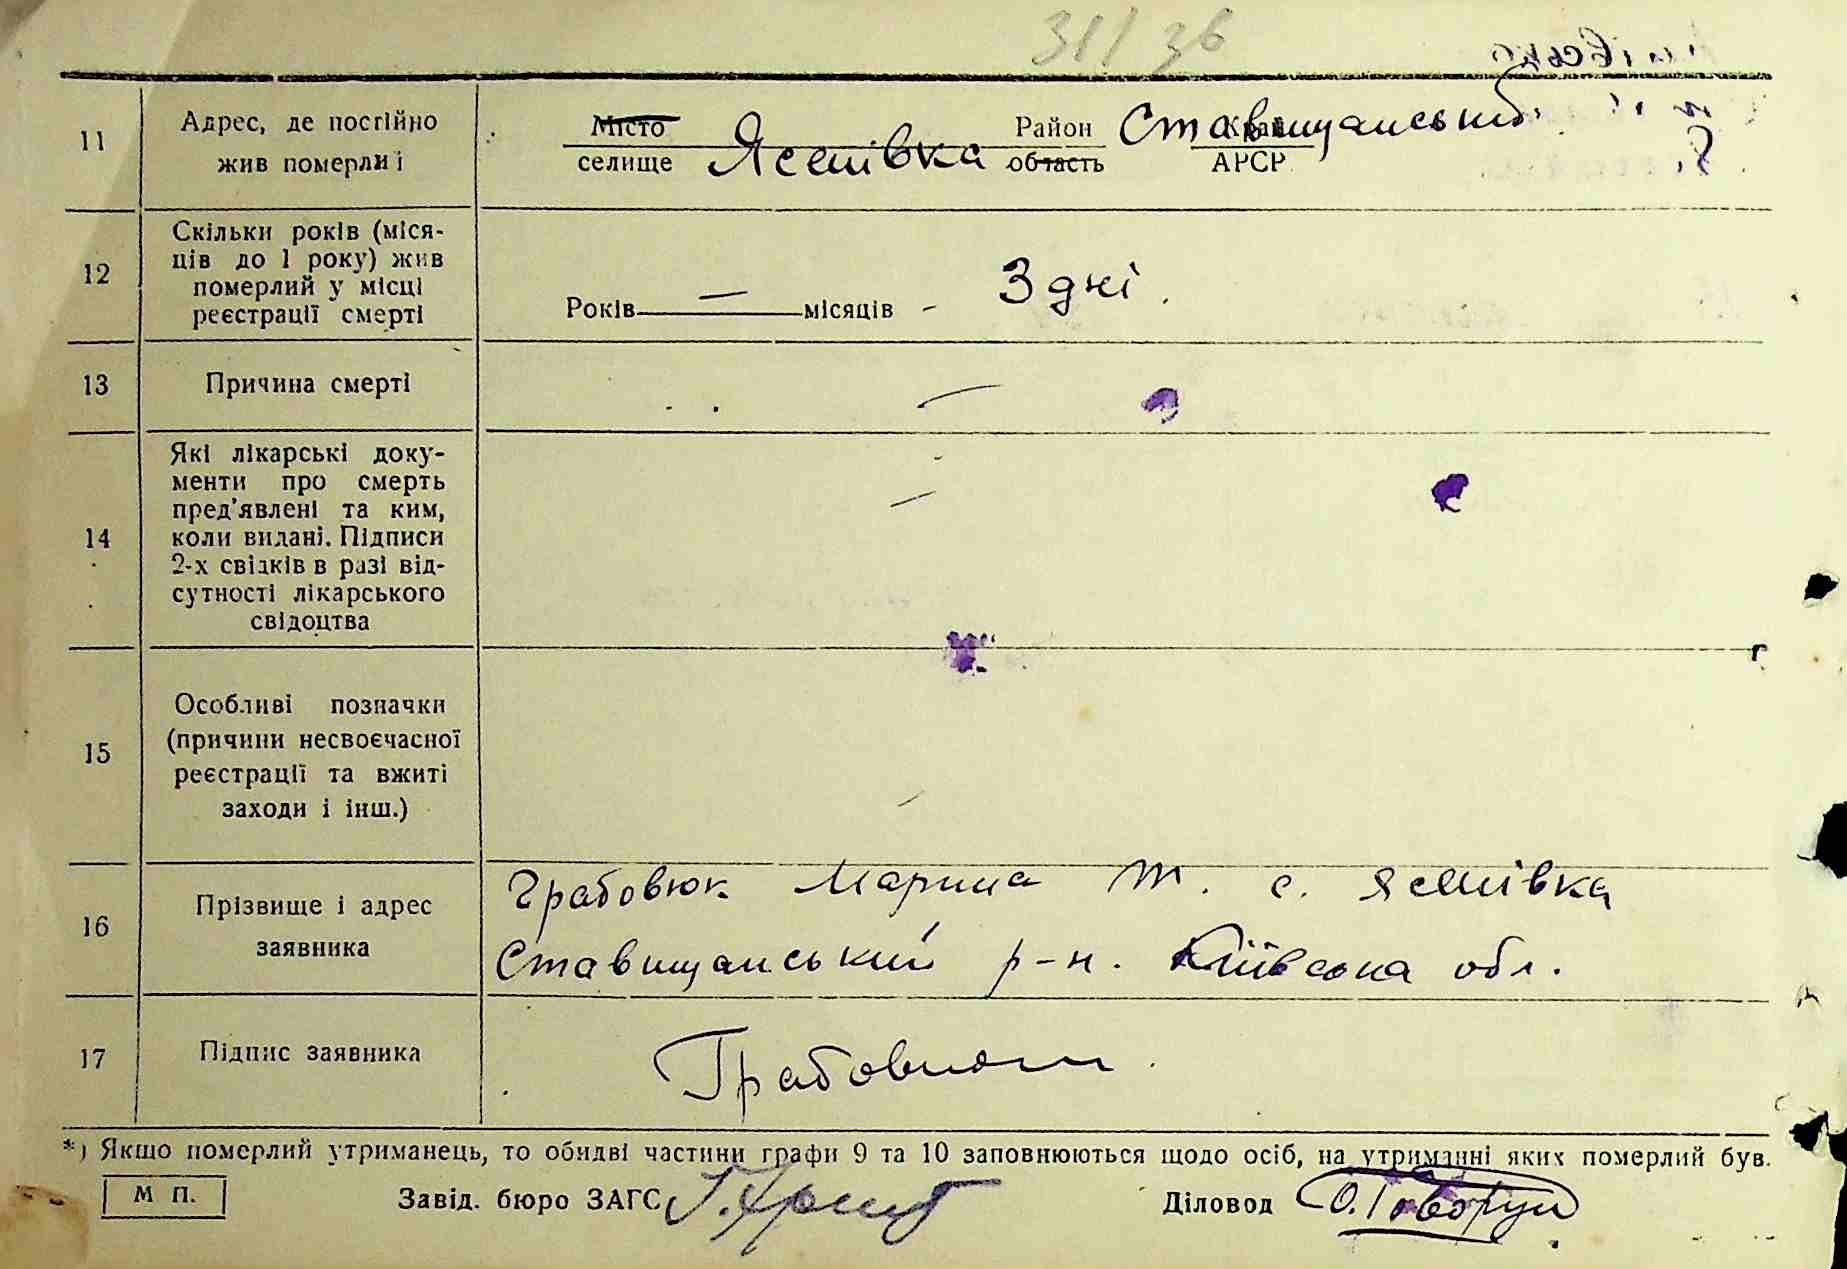 31/36
11
Адрес, де постійно
жив померлиі
Місто
селище
Ясенівка
Район
область
Ставищанський
Край
АРСР
12
Скільки років (міся-
ців до 1 року) жив
померлий у місці
реєстрації смерті
Років — місяців - 3 дні.
13
Причина смерті
—
14
Які лікарські доку-
менти про смерть
пред'явлені та ким,
коли видані. Підписи
2-х свідків в разі від-
сутності лікарського
свідоцтва
—
15
Особливі позначки
(причини несвоєчасної
реєстрації та вжиті
заходи і інш.)
—
16
Прізвище і адрес
заявника
Грабовюк Марина Т. с. Ясенівка
Ставищанський р-н. Київська обл.
17
Підпис заявника
Грабовюк
*) Якщо померлий утриманець, то обидві частини графи 9 та 10 заповнюються щодо осіб, на утриманні яких померлий був.
М П.
Завід. бюро ЗАГС
Діловод О. Говорун